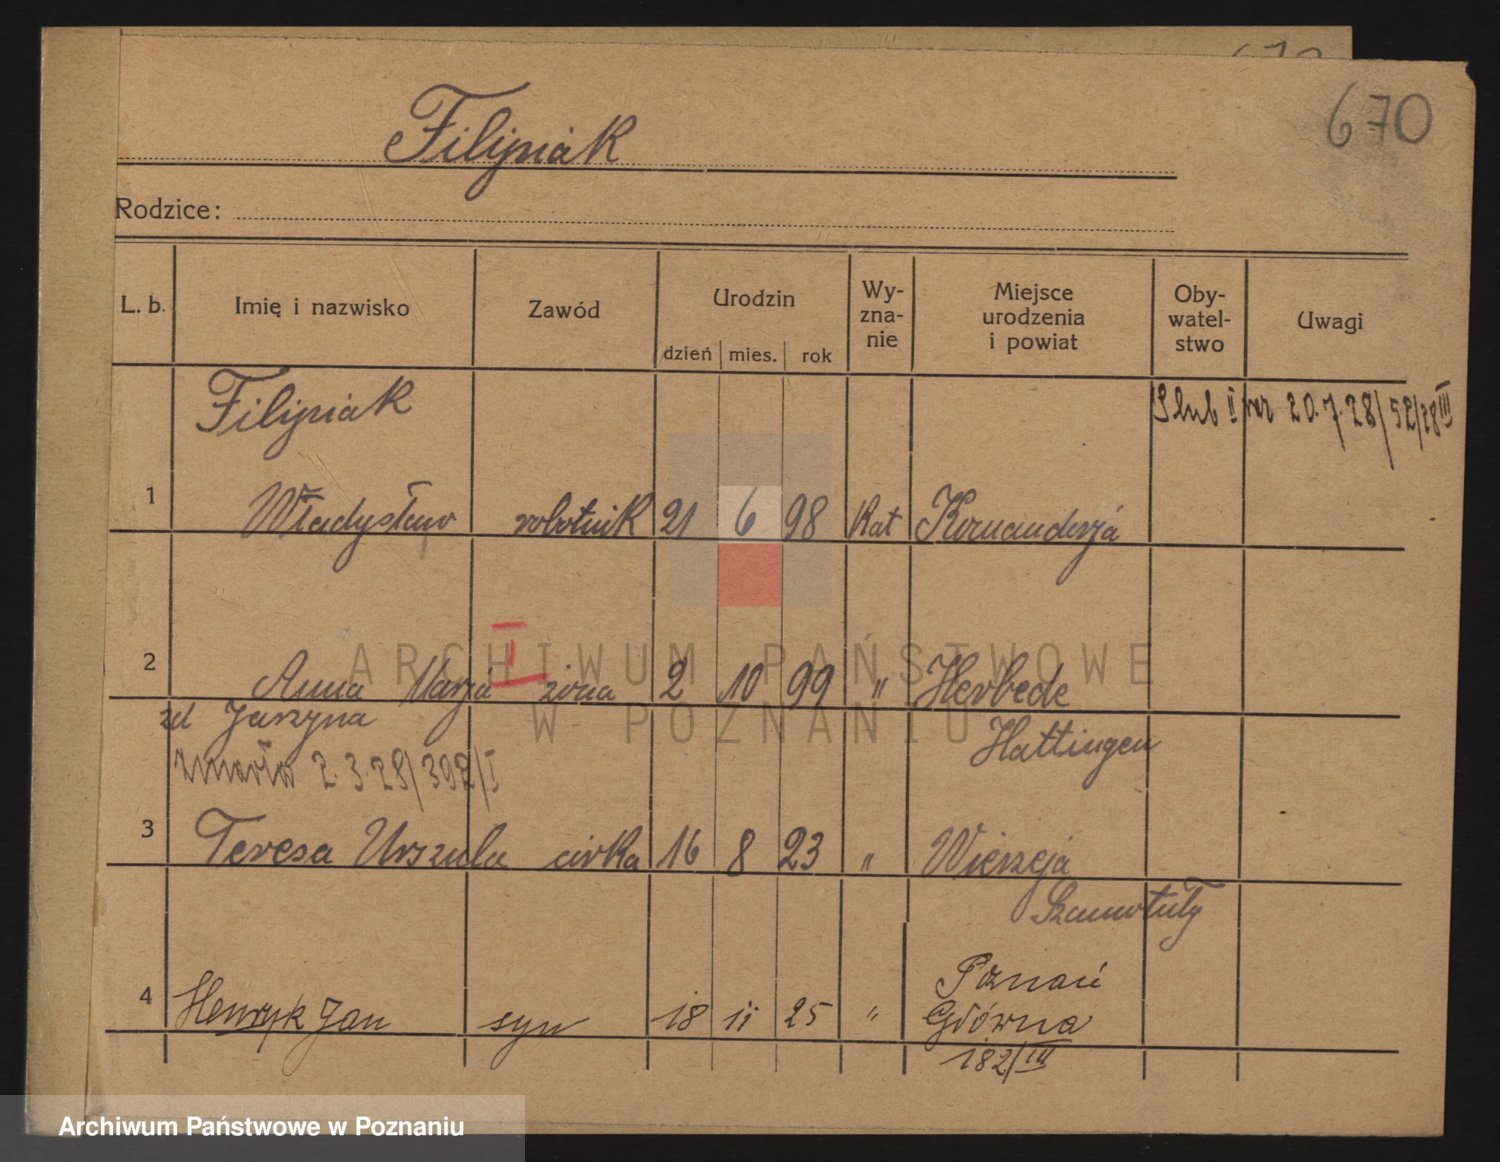 670
Filipiak
Rodzice:
L. b. Imię i nazwisko Zawód Urodzin dzień mies. rok Wy-zna-nie Miejsce urodzenia i powiat Oby-watel-stwo Uwagi
Filipiak Slub II 20.7.28/52/28 III
1 Władysław robotnik 21 6 98 kat Komanderja
I
2 Anna Marja żona 2 10 99 " Herbede
Jarzyna Hattingen
zmarła 2.3.28/392/I
3 Teresa Urszula córka 16 8 23 " Wierzeja
Szamotuły
4 Henryk Jan syn 18 ii 25 " Poznań
Główna
182/III
ARCHIWUM PAŃSTWOWE
W POZNANIU
Archiwum Państwowe w Poznaniu